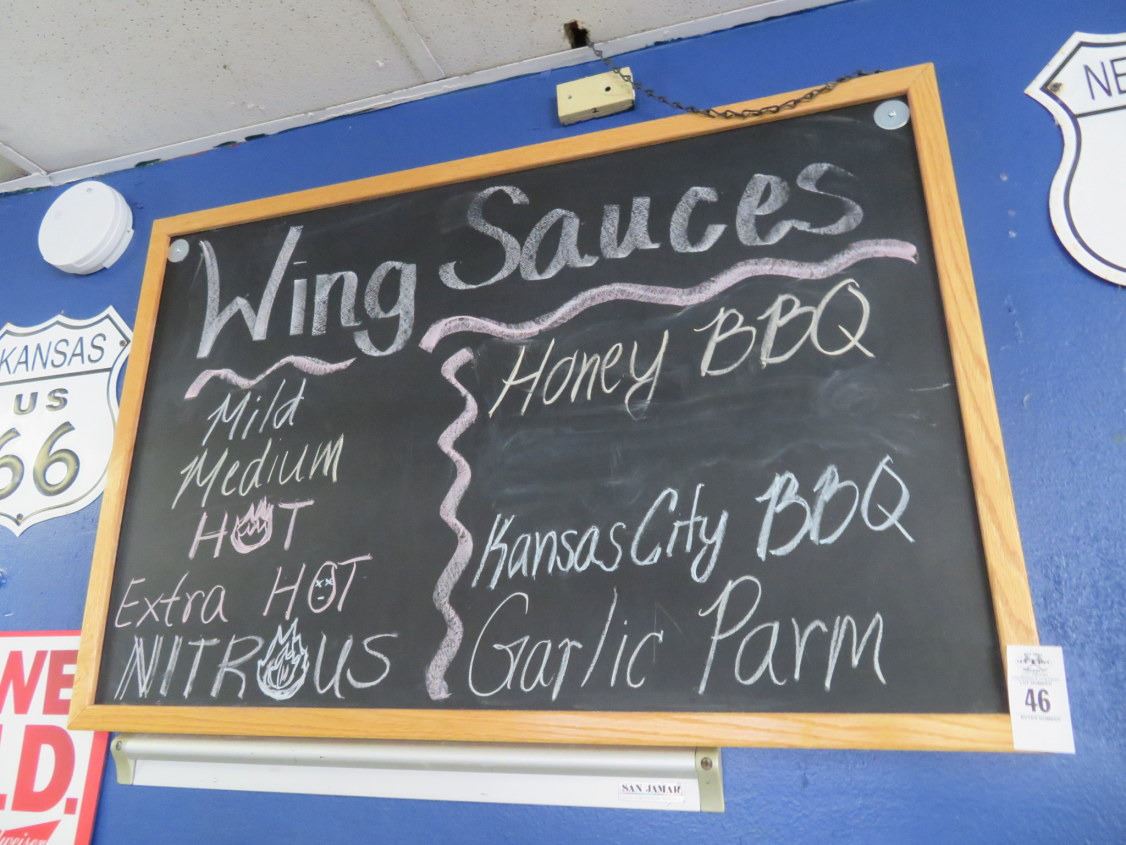 Wing Sauces
Mild
Medium
HOT
Extra HOT
NITROUS
Honey BBQ
Kansas City BBQ
Garlic Parm
KANSAS
US
66
NE
WE
.D.
SAN JAMAR
46